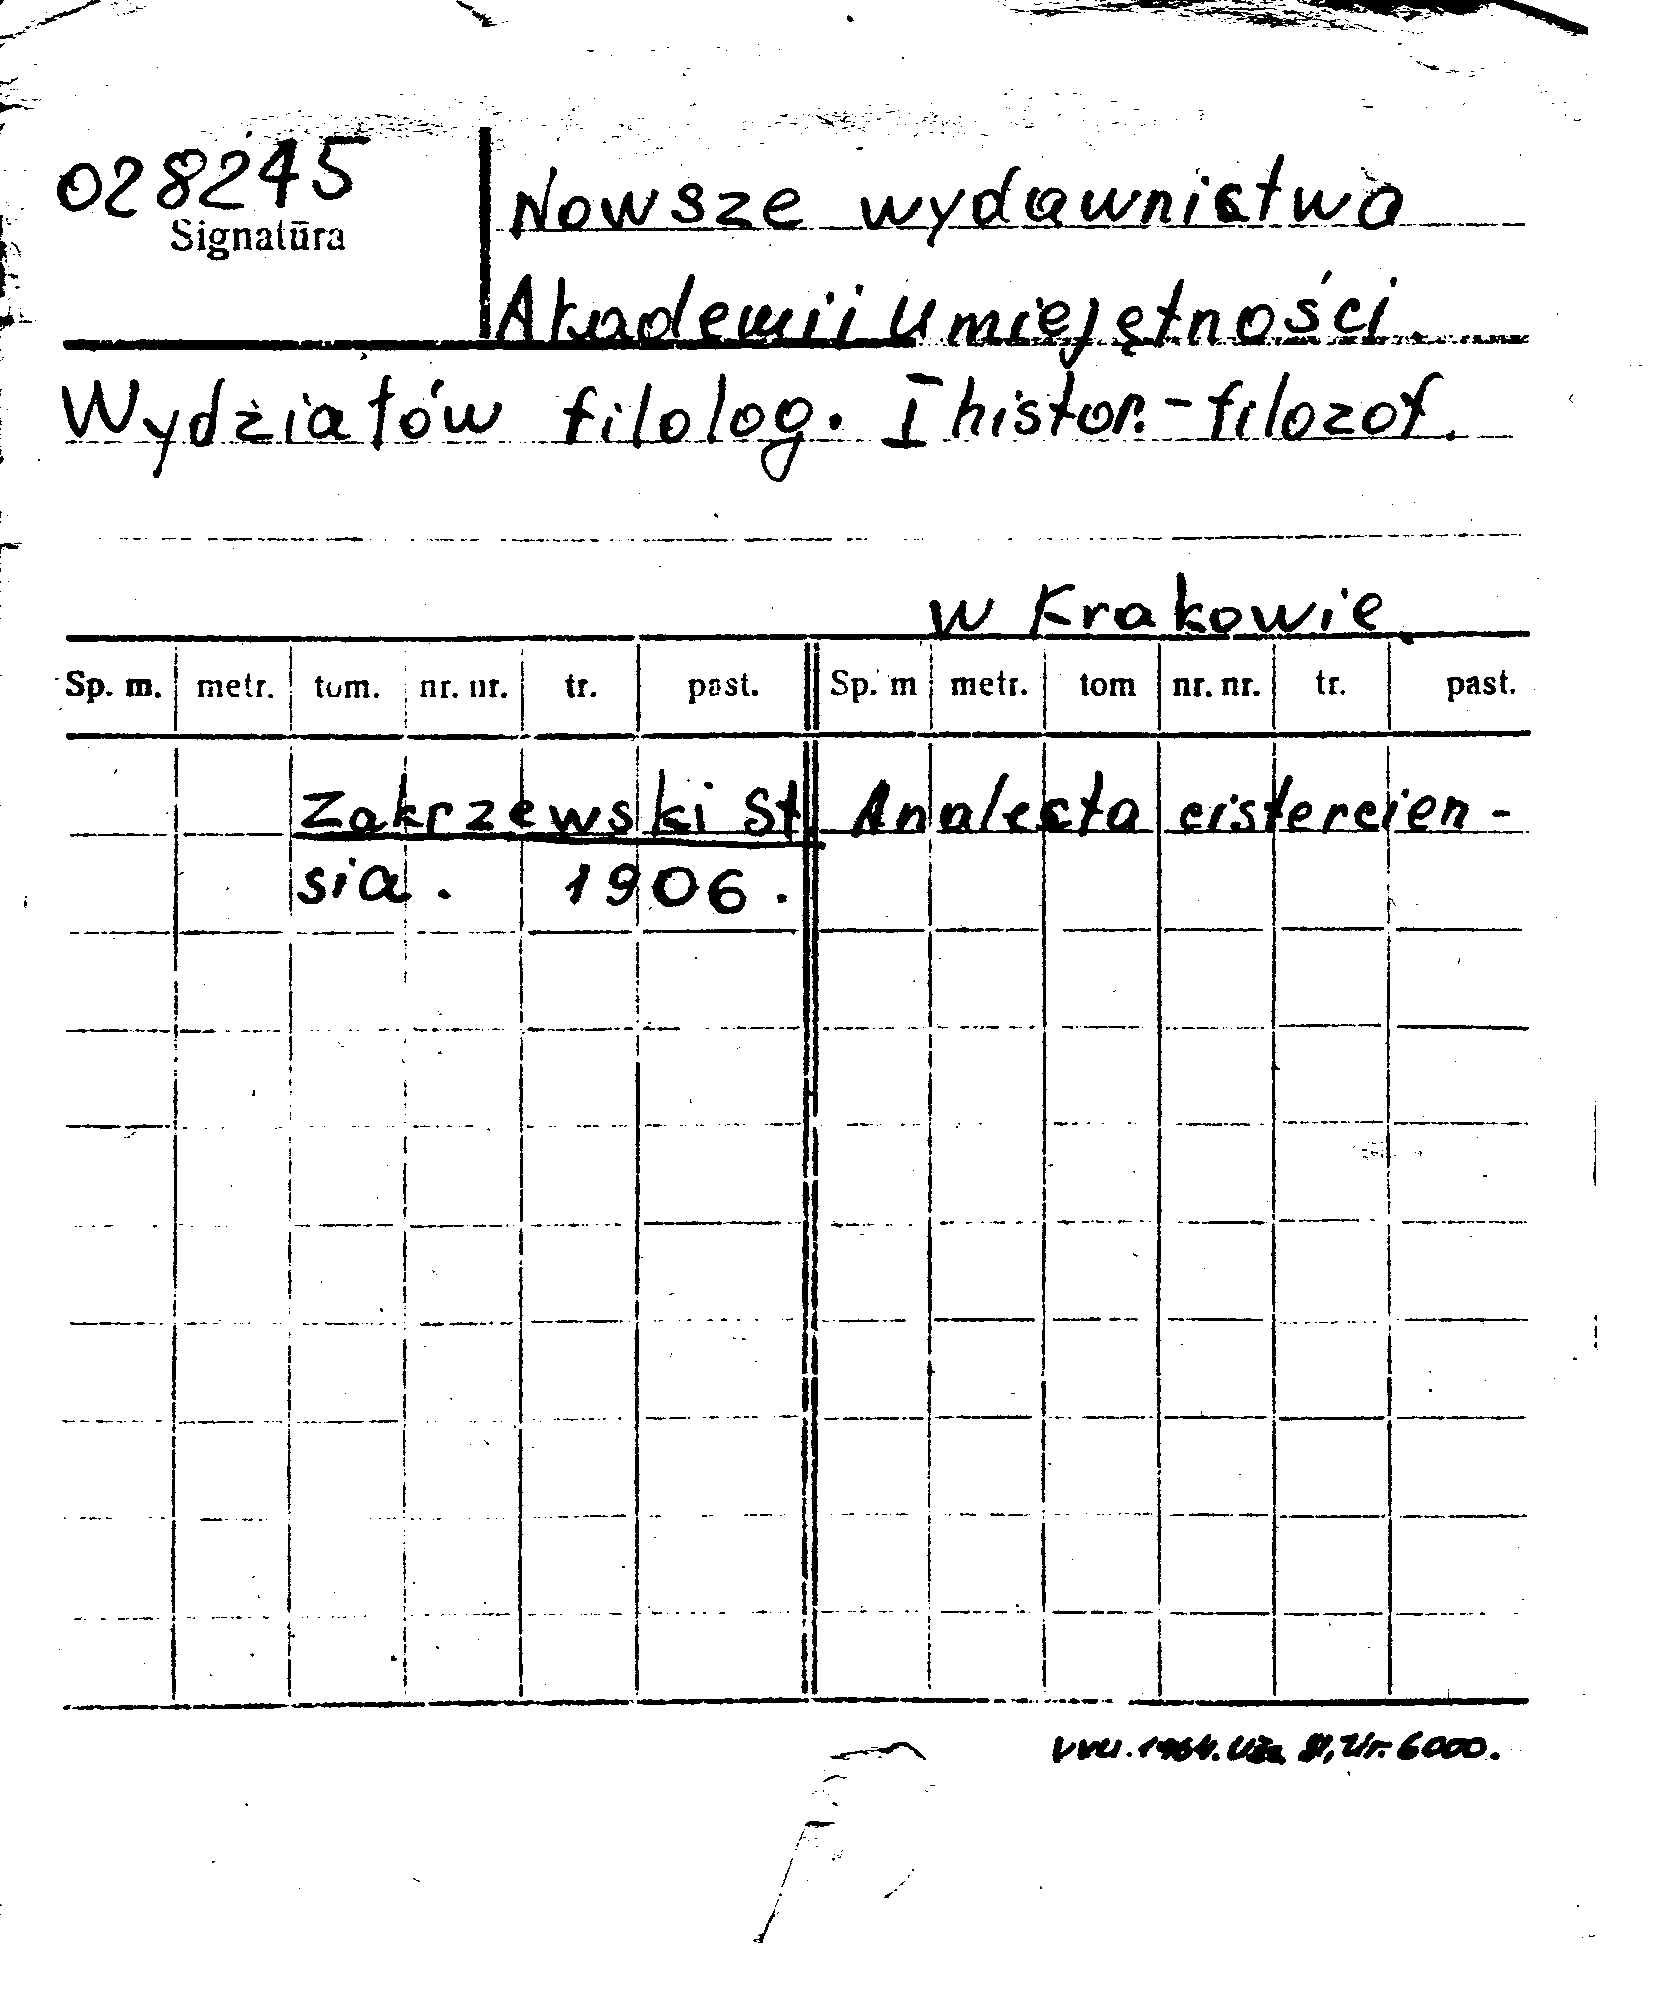 028245
Signatūra
Nowsze wydawnictwa
Akademii Umiejętności.
Wydziałów filolog. I histor.-filozof.
w Krakowie.
Sp. m. metr. tom. nr. nr. tr. past. Sp. m metr. tom nr. nr. tr. past.
Zakrzewski St. Analecta cistercien-
sia. 1906.
VVU. 1964. Užs. Nr. 6000.